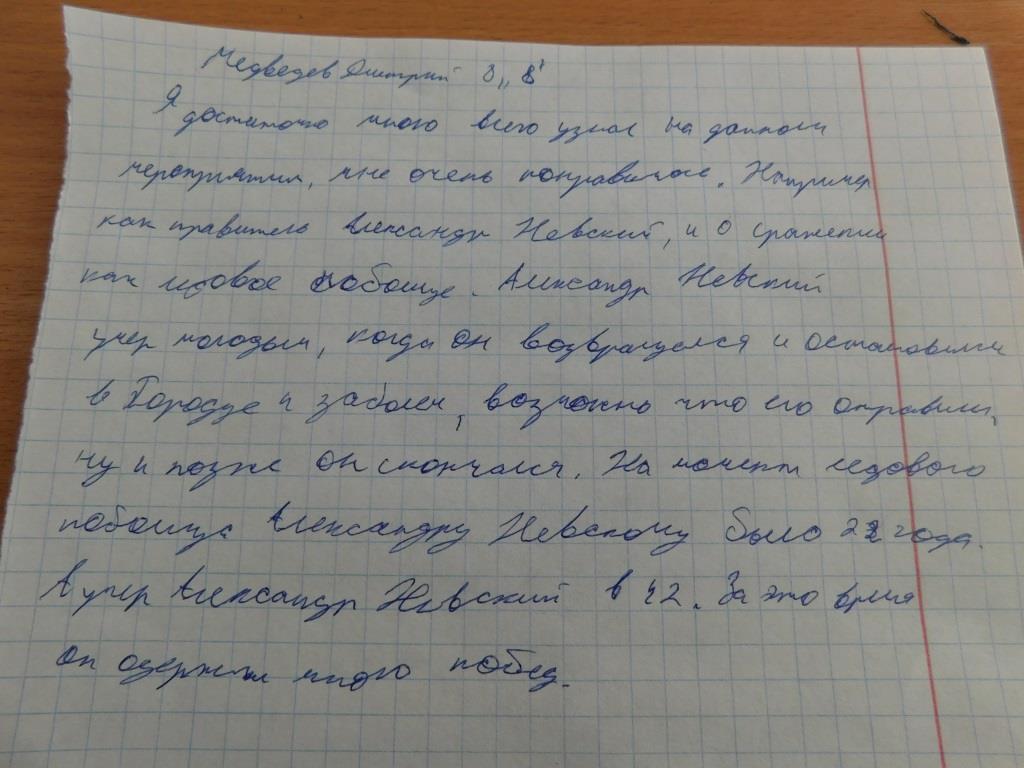 Медведев Дмитрий 8 „в"
Я достаточно много всего узнал на данном
мероприятии, мне очень понравилось. Например
как правитель Александр Невский, и о сражении
как ледовое побоище. Александр Невский
умер молодым, когда он возвращался и остановился
в Городце и заболел, возможно что его отравили,
ну и позже он скончался. На момент ледового
побоища Александру Невскому было 22 года.
А умер Александр Невский в 42. За это время
он одержал много побед.